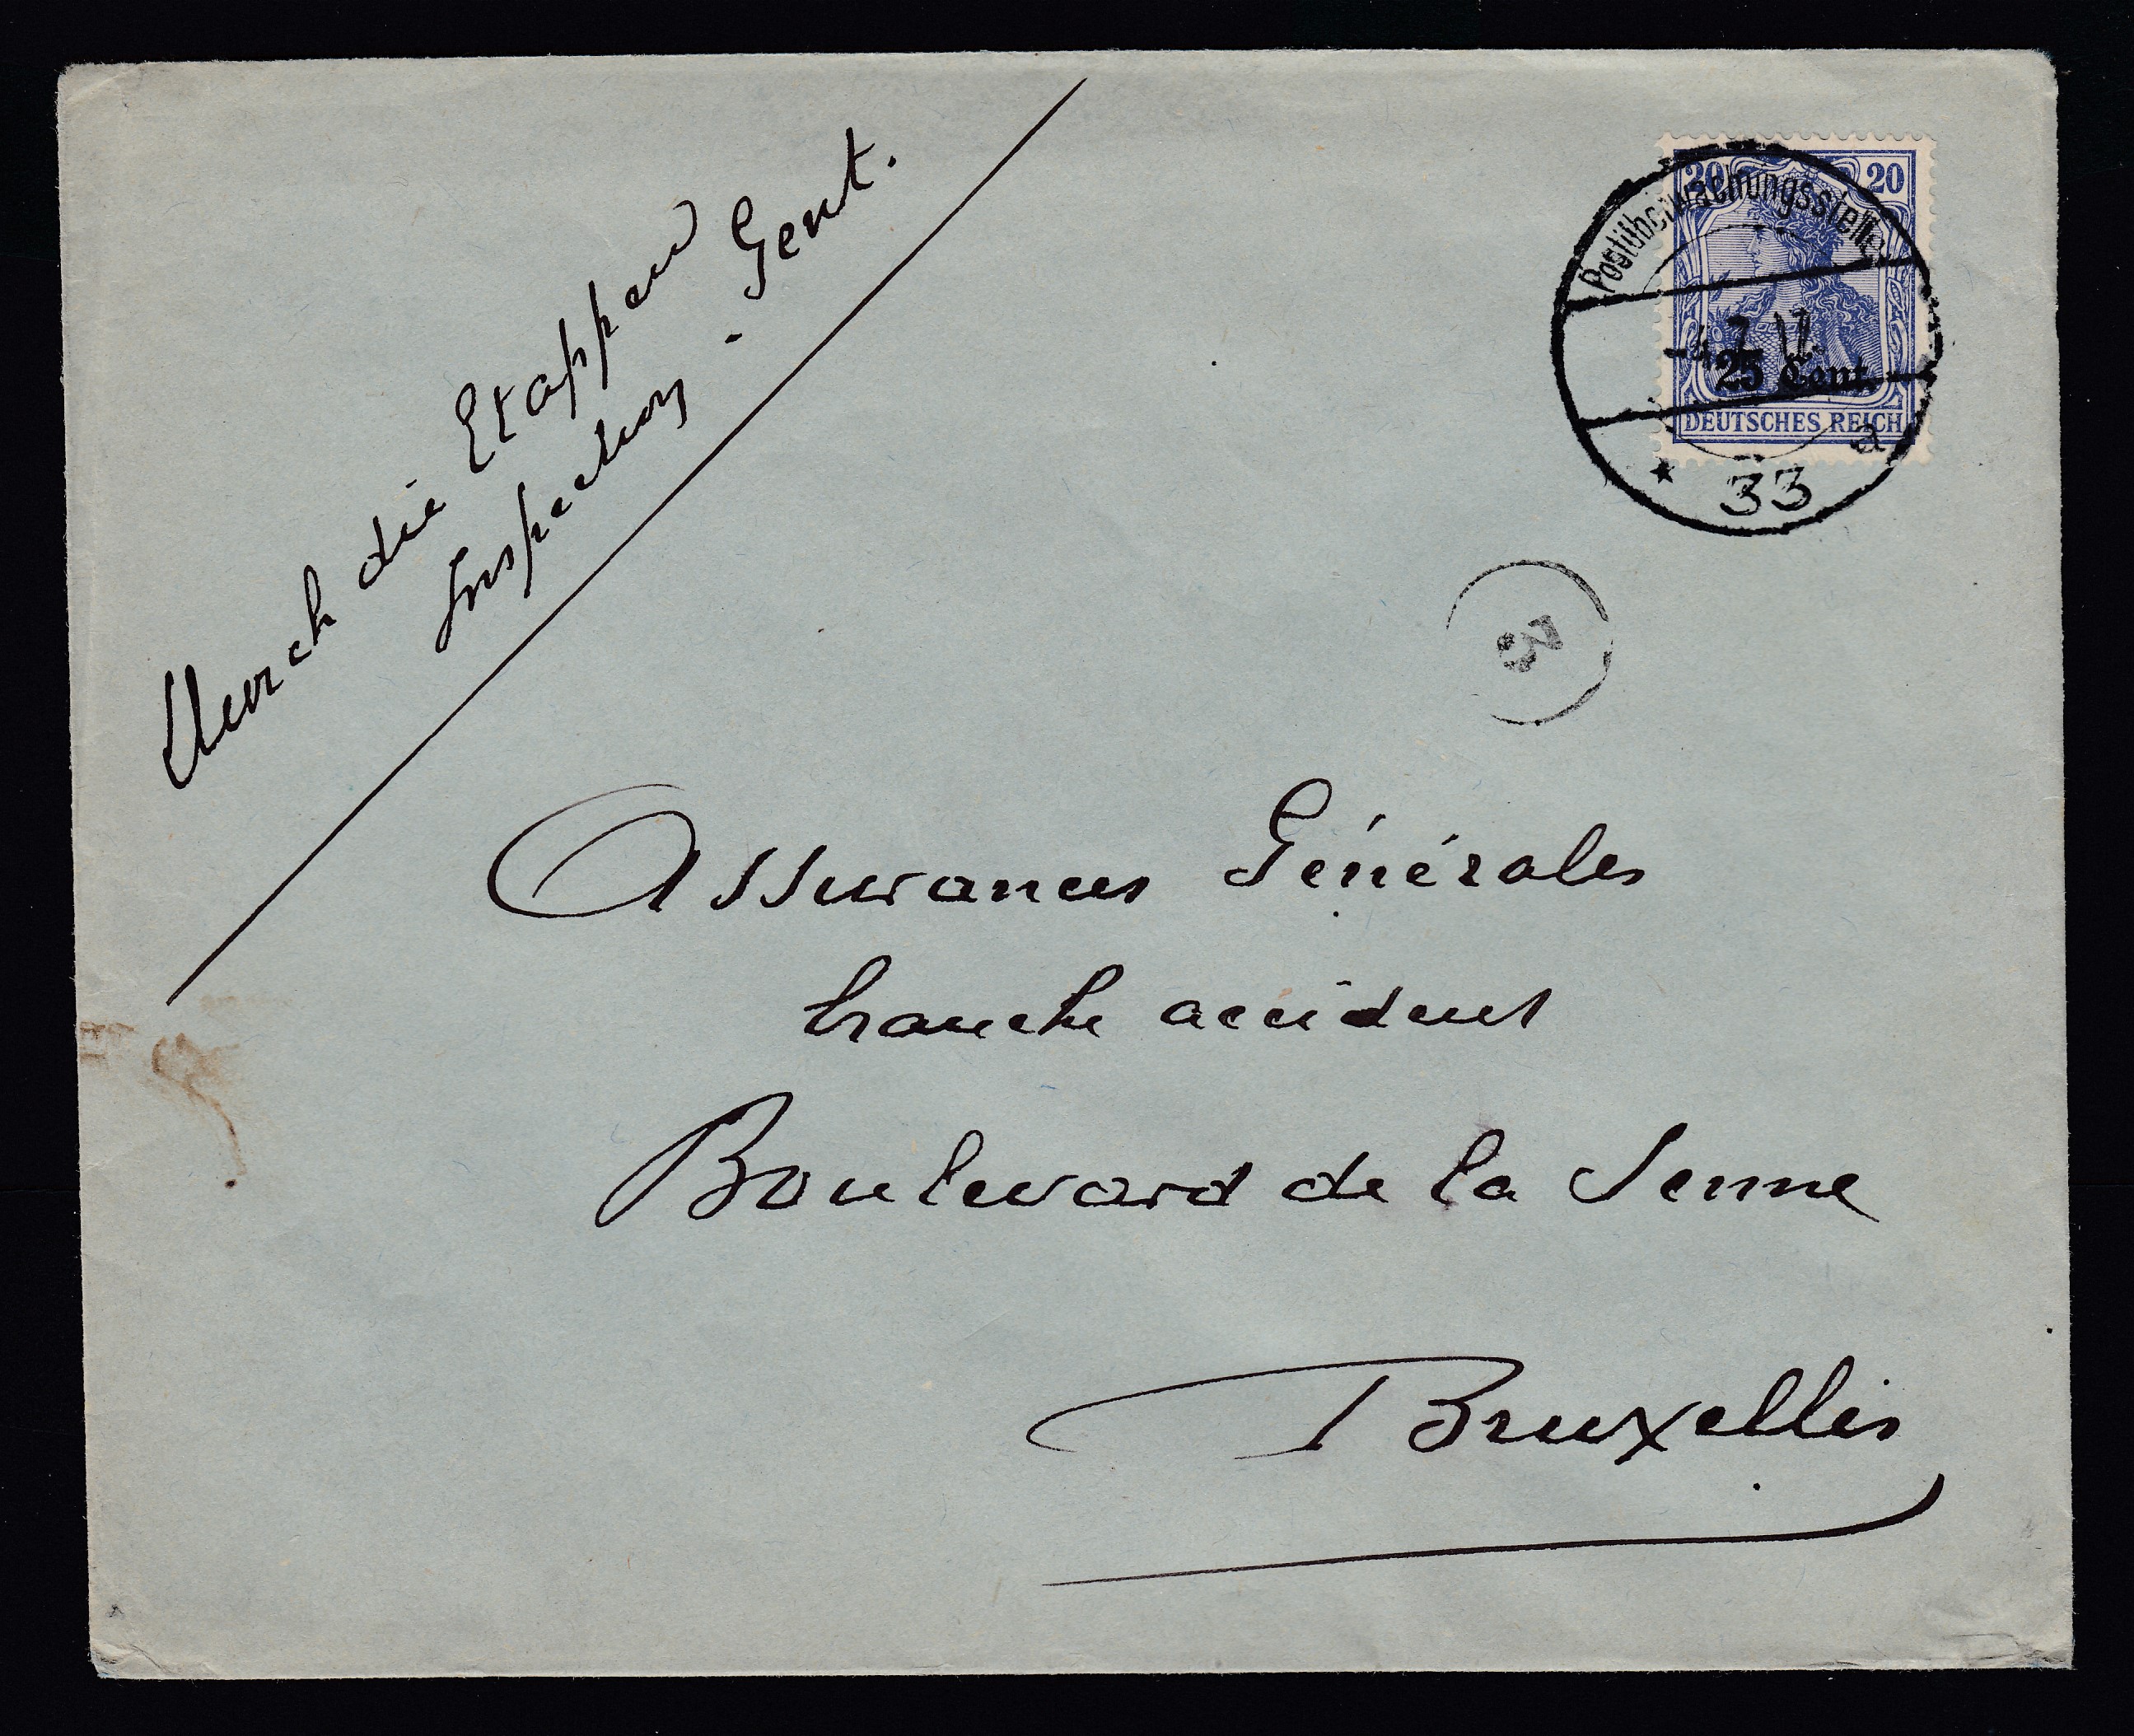 Durch die Etappen
Inspection - Gent.
20 20
Postüberwachungsstelle
-4.7.17.
25 Cent.
DEUTSCHES REICH
* 33 a
3
Assurances Générales
branche accident
Boulevard de la Senne
Bruxelles